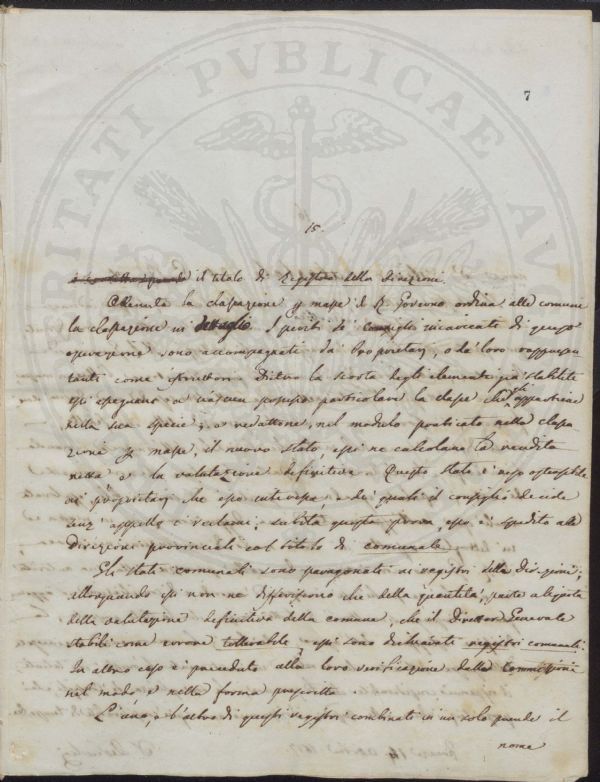 7
15.
il titolo di Registro della direzione.
Ottenuta la classazione p masse il R. Governo ordina alle comune
la classazione in dettaglio. I periti de' consigli incaricati di questa
operazione sono accompagnati da' Proprietarj, o da' loro rappresen
tanti come istruttori. Dietro la scorta degli elementi già stabiliti
essi spegnano a ciascun possesso particolare la classe che gli appartiene
nella sua specie; e redattone, nel modulo praticato nella classa
zione p masse, il nuovo stato, essi ne calcolano la rendita
netta e la valutazione definitiva. Questo stato è reso ostensibile
ai proprietarj che esso interessa, e de' quali il consiglio decide
anz' appello i reclami; subita questa prova, esso è spedito alle
Direzioni provinciali col titolo di comunale.
Gli stati comunali sono paragonati ai registri della direzione;
allorquando essi non ne differiscono che della quantità, parte aliquota
della valutazione definitiva della comune, che il Direttor Generale
stabilì come errore tollerabile, essi sono dichiarati registri comunali.
In altro caso è proceduto alla loro verificazione dalla Commissione
nel modo e nella forma prescritta.
L'uno, e l'altro di questi registri combinati in un solo prende il
nome